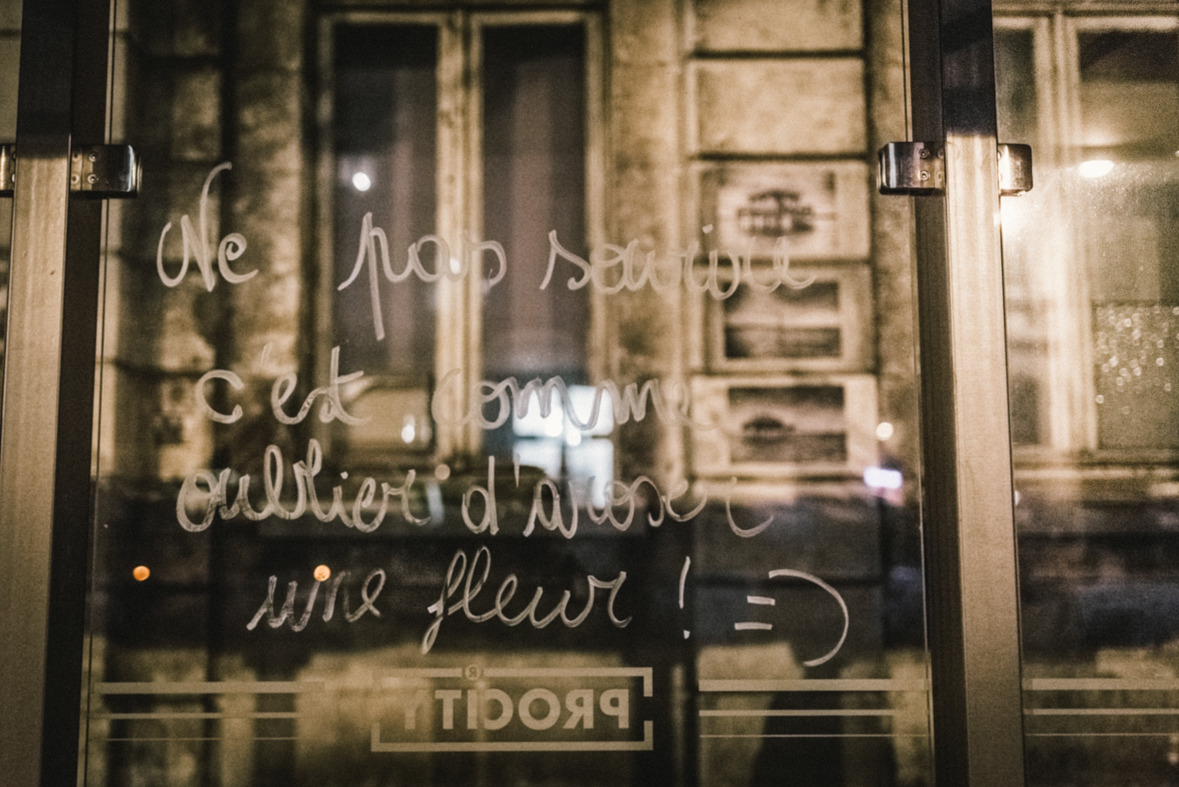 Ne pas sourire
c'est comme
oublier d'aroser
une fleur ! =)
PROCITY®